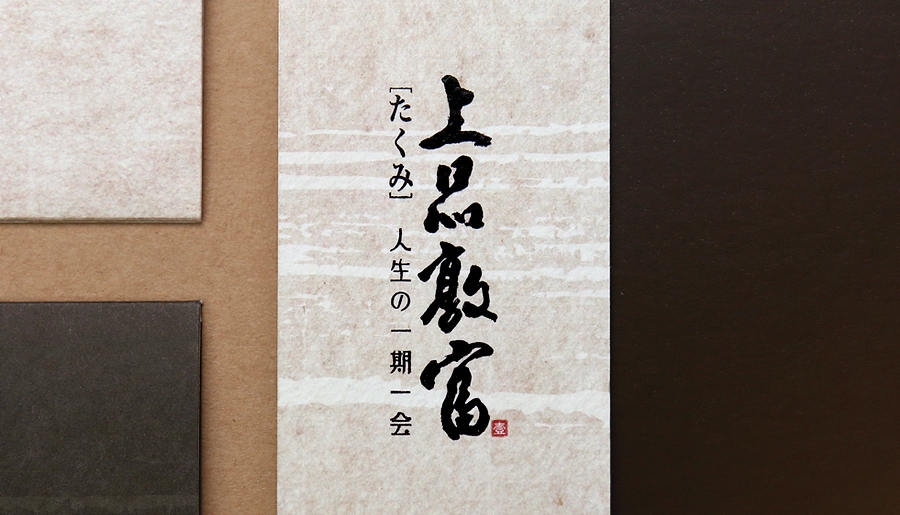 上品敦富
壹
［たくみ］ 人生の一期一会